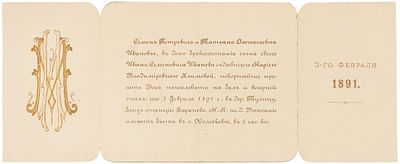 Семенъ Петровичъ и Татьяна Афонасьевна
Ивановы, въ день бракосочетанія сына своего
Ивана Семеновича Иванова съ дѣвицею Маріею
Владиміровною Климовой, покорнѣйше про-
сятъ Васъ пожаловать на балъ и вечерній
столъ, сего 3 Февраля 1891 г. въ дер.
близъ станціи
имѣетъ быть въ с. въ 4 час. веч.
3-ГО ФЕВРАЛЯ
1891.